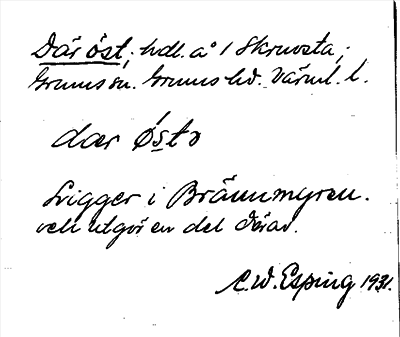 Där öst, hdl. a° 1 Skruvsta,
Grums sn. Grums hd. Värml. l.
dær östo
Ligger i Brännmyren.
och utgör en del därav.
C.W. Esping 1931.